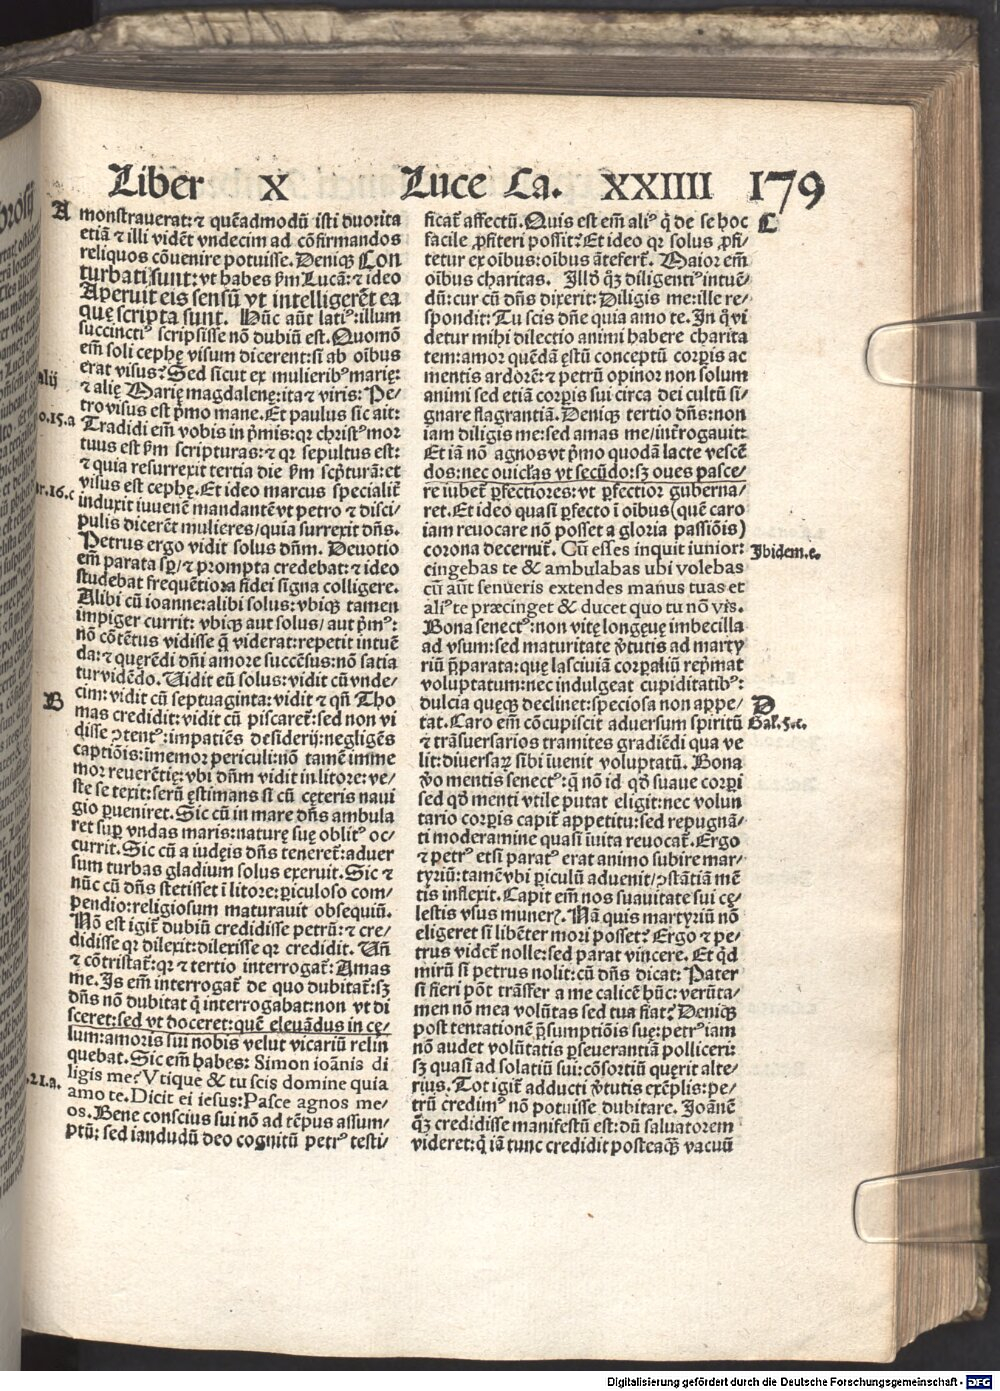 Liber X Luce Ca. XXIIII 179
A
monstrauerat: ⁊ quēadmodū isti duo: ita
etiā ⁊ illi vidēt vndecim ad cōfirmandos
reliquos cōuenire potuisse. Deniqȝ Con
turbati sunt: vt habes ẜm Lucā: ⁊ ideo
Aperuit eis sensū vt intelligerēt ea
que scripta sunt. Hūc aūt latiꝰ: illum
succinctiꝰ scripsisse nō dubiū est. Quomō
em̄ soli cephę visum dicerent: si ab oībus
erat visus? Sed sicut ex mulieribꝰ marię:
alij
⁊ alię Marię magdalenę: ita ⁊ viris: Pe/
tro visus est p̄mo mane. Et paulus sic ait:
o.15.a
Tradidi em̄ vobis in p̄mis: qꝛ christꝰ mor
tuus est ẜm scripturas: ⁊ qꝛ sepultus est:
⁊ quia resurrexit tertia die ẜm scp̄turā: et
visus est cephę. Et ideo marcus specialit̄
r.16.c
induxit iuuenē mandantē vt petro ⁊ disci/
pulis dicerēt mulieres/ quia surrexit dn̄s.
Petrus ergo vidit solus dn̄m. Deuotio
em̄ parata sp̄/ ⁊ prompta credebat: ⁊ ideo
studebat frequētiora fidei signa colligere.
Alibi cū ioanne: alibi solus: vbiqȝ tamen
impiger currit: vbiqȝ aut solus/ aut p̄mꝰ:
nō cōtētus vidisse q̄ viderat: repetit intuē
da: ⁊ querēdi dn̄i amore succēsus: nō satia
tur vidēdo. Uidit eū solus: vidit cū vnde/
B
cim: vidit cū septuaginta: vidit ⁊ qn̄ Tho
mas credidit: vidit cū piscaret̄: sed non vi
disse ꝯtentꝰ: impatiēs desiderij: negligēs
captiōis: imemor periculi: nō tamē imme
mor reuerētię: vbi dn̄m vidit in litore: ve/
ste se texit: serū ęstimans si cū cęteris naui
gio ꝑueniret. Sic cū in mare dn̄s ambula
ret sup̄ vndas maris: naturę suę oblitꝰ oc/
currit. Sic cū a iudęis dn̄s teneret̄: aduer
sum turbas gladium solus exeruit. Sic ⁊
nūc cū dn̄s stetisset ī litore: ꝑiculoso com/
pendio: religiosum maturauit obsequiū.
Nō est igit̄ dubiū credidisse petrū: ⁊ cre/
didisse qꝛ dilexit: dilexisse qꝛ credidit. Un̄
⁊ cōtristat̄: qꝛ ⁊ tertio interrogat̄: Amas
me. Is em̄ interrogat̄ de quo dubitat̄: sȝ
dn̄s nō dubitat q̄ interrogabat: non vt di
sceret: sed vt doceret: quē eleuādus in cę/
lum: amoris sui nobis velut vicariū relin
quebat. Sic em̄ habes: Simon ioānis di
.21.a.
ligis me? Vtique & tu scis domine quia
amo te. Dicit ei iesus: Pasce agnos me/
os. Bene conscius sui nō ad tēpus assum/
ptū: sed iandudū deo cognitū petrꝰ testi/
ficat̄ affectū. Quis est em̄ aliꝰ q̄ de se hoc
C
facile ꝓfiteri possit? Et ideo qꝛ solus ꝓfi/
tetur ex oībus: oībus ātefert̄. Maior em̄
oībus charitas. Illd̄ qȝ diligentiꝰ intuē/
dū: cur cū dn̄s dixerit: Diligis me: ille re/
spondit: Tu scis dn̄e quia amo te. In q̄ vi
detur mihi dilectio animi habere charita
tem: amor quēdā ęstū conceptū corꝑis ac
mentis ardorē: ⁊ petrū opinor non solum
animi sed etiā corꝑis sui circa dei cultū si/
gnare flagrantiā. Deniqȝ tertio dn̄s: non
iam diligis me: sed amas me/ int̄rogauit:
Et iā nō agnos vt p̄mo quodā lacte vescē
dos: nec ouiclas vt secūdo: sȝ oues pasce/
re iubet̄ ꝑfectiores: vt ꝑfectior guberna/
ret. Et ideo quasi ꝑfecto ī oībus (quē caro
iam reuocare nō posset a gloria passiōis)
corona decernit̄. Cū esses inquit iunior:
Ibidem.e.
cingebas te & ambulabas ubi volebas
cū aūt senueris extendes manus tuas et
aliꝰ te præcinget & ducet quo tu nō vis.
Bona senectꝰ: non vitę longeuę imbecilla
ad vsum: sed maturitate v̄tutis ad marty
riū p̄parata: quę lasciuiā corꝑaliū rep̄mat
voluptatum: nec indulgeat cupiditatibꝰ:
dulcia quęqȝ declinet: speciosa non appe/
D
tat. Caro em̄ cōcupiscit aduersum spiritū
Gal.5.c.
⁊ trāsuersarios tramites gradiēdi qua ve
lit: diuersaꝝ sibi iuenit voluptatū. Bona
v̄o mentis senectꝰ: q̄ nō id qd̄ suaue corꝑi
sed qd̄ menti vtile putat eligit: nec volun
tario corꝑis capit̄ appetitu: sed repugnā/
ti moderamine quasi iuita reuocat̄. Ergo
⁊ petrꝰ etsi paratꝰ erat animo subire mar/
tyriū: tamē vbi ꝑiculū aduenit/ ꝯstātiā mē
tis inflexit. Capit em̄ nos suauitate sui cę/
lestis vsus munerꝭ. Nā quis martyriū nō
eligeret si libēter mori posset? Ergo ⁊ pe/
trus videt̄ nolle: sed parat vincere. Et qd̄
mirū si petrus nolit: cū dn̄s dicat: Pater
si fieri pōt trāsfer a me calicē hūc: verūta/
men nō mea volūtas sed tua fiat? Deniqȝ
post tentationē p̄sumptiōis suę: petrꝰ iam
nō audet volūtatis ꝑseuerantiā polliceri:
sȝ quasi ad solatiū sui: cōsortiū querit alte/
rius. Tot igit̄ adducti v̄tutis exēplis: pe/
trū credimꝰ nō potuisse dubitare. Ioānē
qȝ credidisse manifestū est: dū saluatorem
videret: q̄ iā tunc credidit posteaqȝ vacuū
Digitalisierung gefördert durch die Deutsche Forschungsgemeinschaft - DFG